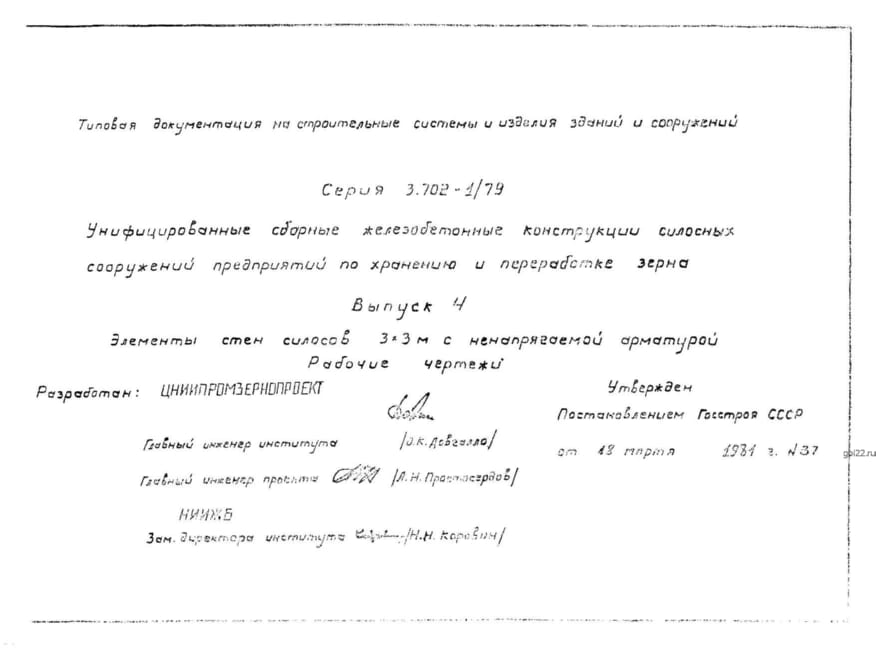 Типовая документация на строительные системы и изделия зданий и сооружений
Серия 3.702-1/79
Унифицированные сборные железобетонные конструкции силосных
сооружений предприятий по хранению и переработке зерна
Выпуск 4
Элементы стен силосов 3×3 м с ненапрягаемой арматурой
Рабочие чертежи
Разработан: ЦНИИПРОМЗЕРНОПРОЕКТ
Утвержден
Постановлением Госстроя СССР
от 18 марта 1981 г. №37
Главный инженер института /О.К. Довгалло/
Главный инженер проекта /Л.Н. Простосердов/
НИИЖБ
Зам. директора института /Н.Н. Коровин/